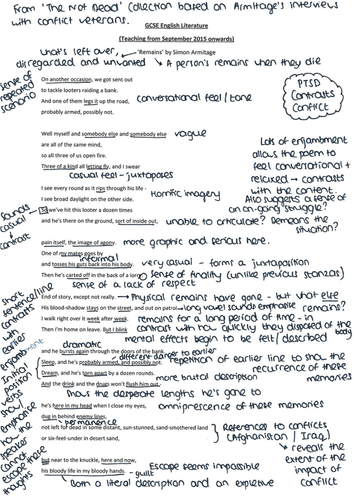 From 'The Not Dead' Collection based on Armitage's interviews
with conflict veterans.
GCSE English Literature
(Teaching from September 2015 onwards)
What's left over,
disregarded and unwanted
'Remains' by Simon Armitage
A person's remains when they die
sense of
repeated
scenario
On another occasion, we got sent out
to tackle looters raiding a bank.
And one of them legs it up the road,
probably armed, possibly not.
conversational feel/tone
PTSD
Contrasts
Conflict
Well myself and somebody else and somebody else
are all of the same mind,
so all three of us open fire.
Three of a kind all letting fly, and I swear
vague
casual feel - juxtaposes
Lots of enjambment
allows the poem to
feel conversational +
relaxed → contrasts
with the content.
Also suggests a sense of
an on-going struggle?
I see every round as it rips through his life -
I see broad daylight on the other side.
So we've hit this looter a dozen times
and he's there on the ground, sort of inside out,
Horrific imagery
Sounds
casual
+
contrast
unable to articulate? Demeans the
situation?
pain itself, the image of agony.
more graphic and serious here.
One of my mates goes by
and tosses his guts back into his body.
Then he's carted off in the back of a lorry.
informal
very casual - forms a juxtaposition
sense of finality (unlike previous stanzas)
sense of a lack of respect
End of story, except not really.
His blood-shadow stays on the street, and out on patrol
I walk right over it week after week.
Then I'm home on leave. But I blink
Physical remains have gone - but what else
remains?
long vowel sounds emphasise
remains for a long period of time - in
contrast with how quickly they disposed of the
body
mental effects begin to be felt / described
short
sentence/line
contrasts
with
earlier
enjambment
dramatic
and he bursts again through the doors of the bank.
Sleep, and he's probably armed, and possibly not.
Dream, and he's torn apart by a dozen rounds.
And the drink and the drugs won't flush him out -
different danger to earlier
repetition of earlier line to show the
recurrence of these
memories
more brutal description
Initial
position
verbs
emphasise
how
the
speaker
cannot
escape
these
thoughts
shows the desperate lengths he's gone to
he's here in my head when I close my eyes,
dug in behind enemy lines,
not left for dead in some distant, sun-stunned, sand-smothered land
or six-feet-under in desert sand,
omnipresence of these memories
permanence
References to conflicts
(Afghanistan / Iraq)
reveals the
extent of the
impact of
conflict
but near to the knuckle, here and now,
his bloody life in my bloody hands.
Escape seems impossible
guilt
Both a literal description and an expletive